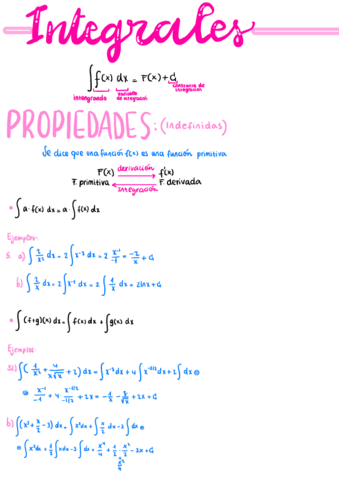 Integrales
∫ f(x) dx = F(x) + C
integrando variable de integración constante de integración
PROPIEDADES: (Indefinidas)
Se dice que una función f(x) es una función primitiva
F(x) derivación f'(x)
F. primitiva integración F. derivada
• ∫ a · f(x) dx = a · ∫ f(x) dx
Ejemplos:
a) ∫ 2/x² dx = 2 ∫ x⁻² dx = 2 x⁻¹/-1 = -2/x + C
b) ∫ 2/x dx = 2 ∫ x⁻¹ dx = 2 ∫ 1/x dx = 2lnx + C
• ∫ (f+g)(x) dx = ∫ f(x) dx + ∫ g(x) dx
Ejemplos:
a) ∫ ( 1/x² + 4/x√x + 2 ) dx = ∫ x⁻² dx + 4 ∫ x^-3/2 dx + 2 ∫ dx =
= x⁻¹/-1 + 4 x^-1/2/-1/2 + 2x = -1/x - 8/√x + 2x + C
b) ∫ (x³ + x/2 - 3) dx = ∫ x³ dx + ∫ x/2 dx - 3 ∫ dx =
= ∫ x³ dx + 1/2 ∫ x dx - 3 ∫ dx = x⁴/4 + 1/2 · x²/2 - 3x + C
x²/4